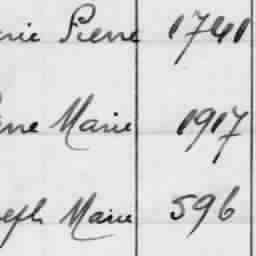 rie Pierre 1741
rre Marie 1917
seph Marie 596